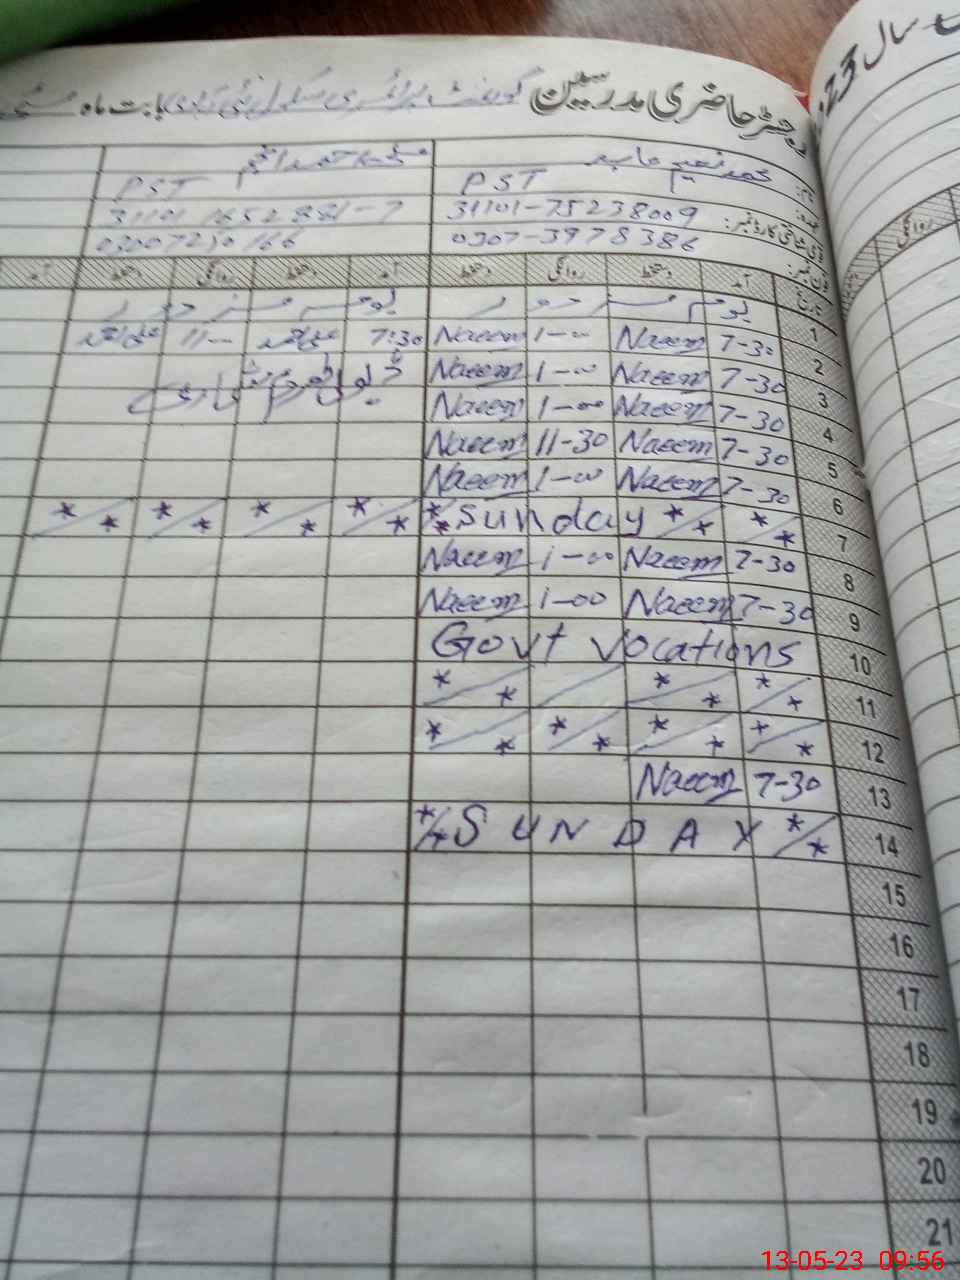 رجسٹر حاضری مدرسین گورنمنٹ پرائمری سکول بابت ماہ مئی
سال 23
محمد نعیم عابد
عہدہ: PST PST
شناختی کارڈ نمبر: 31101-75238009 31101 1652881-7
فون نمبر: 0307-3978386 03007250166
تاریخ آمد دستخط روانگی دستخط آمد دستخط روانگی دستخط آمد
روانگی
1 یوم مزدور یوم مزدور
2 7-30 Naeem 1-00 Naeem 7:30 11-00
3 7-30 Naeem 1-00 Naeem
4 7-30 Naeem 1-00 Naeem
5 7-30 Naeem 11-30 Naeem
6 7-30 Naeem 1-00 Naeem
7 Sunday
8 7-30 Naeem 1-00 Naeem
9 7-30 Naeem 1-00 Naeem
10 Govt vocations
11
12
13 7-30 Naeem
14 SUNDAY
15
16
17
18
19
20
21
13-05-23 09:56